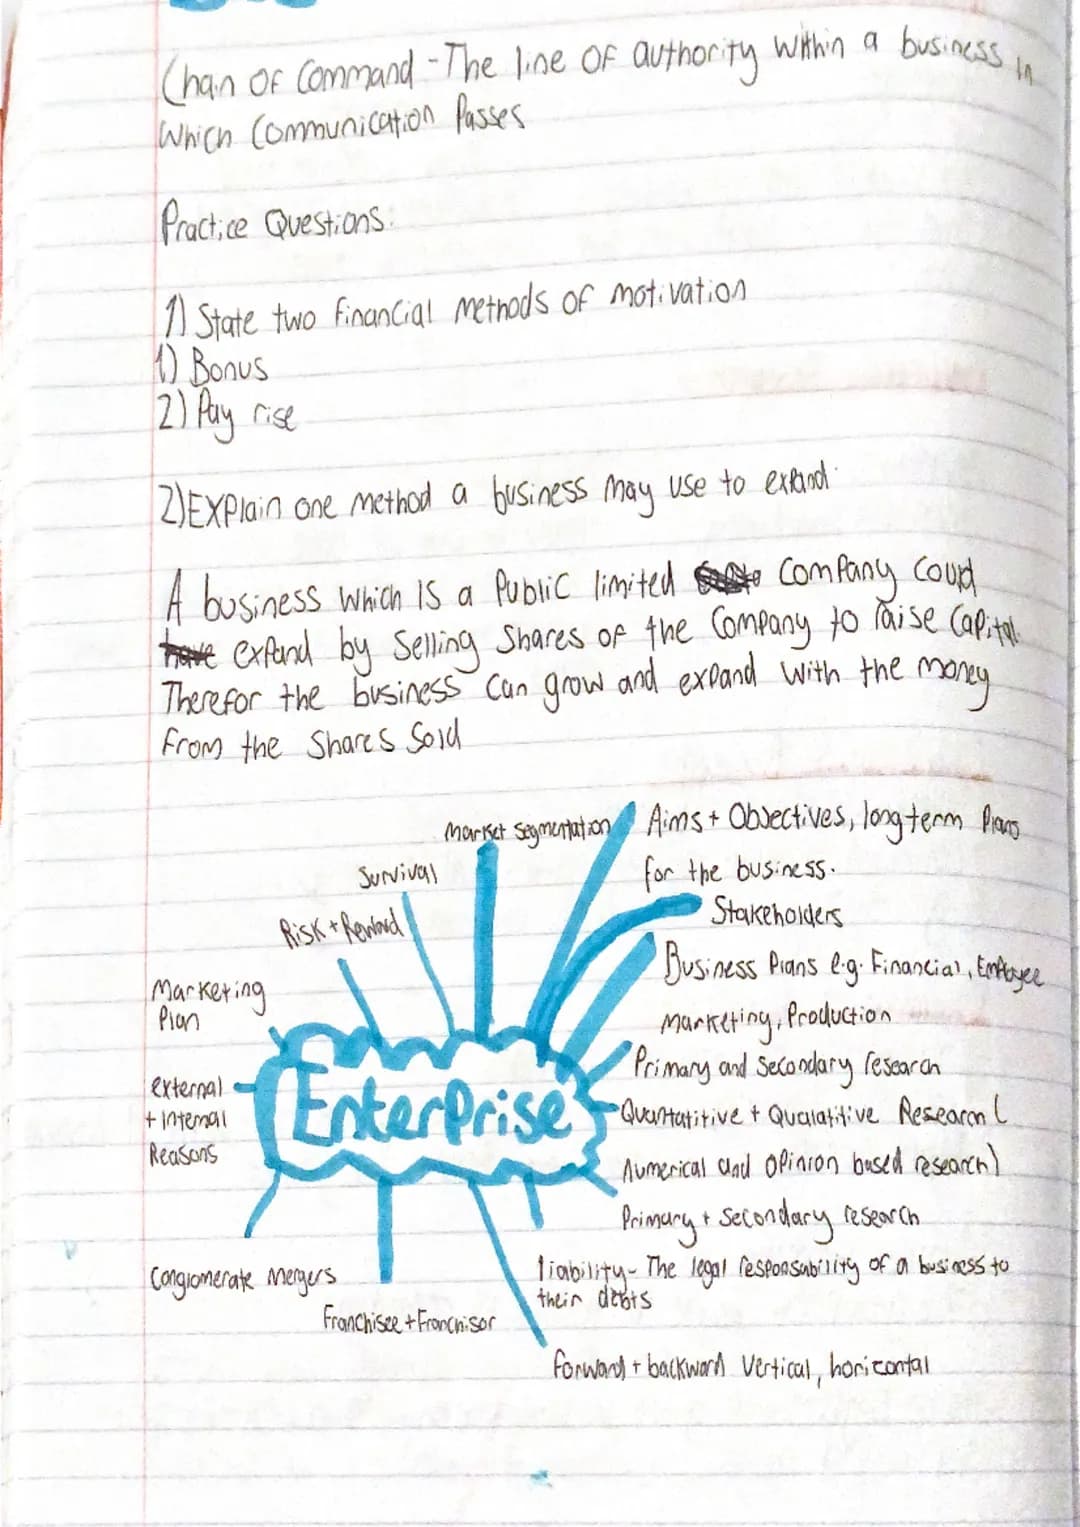 Chain of Command - The line of authority within a business in
which Communication Passes
Practice Questions:
1) State two financial methods of motivation
1) Bonus
2) Pay rise
2) Explain one method a business may use to expand
A business which is a Public limited Company Could
have expand by Selling Shares of the Company to raise Capital.
Therefor the business can grow and expand with the money
from the Shares Sold
Market Segmentation
Survival
Risk + Reward
Marketing
Plan
external
+ internal
Reasons
Conglomerate Mergers
Franchisee + Franchisor
Enterprise
Aims + Objectives, long term Plans
for the business.
Stakeholders
Business Plans e.g. Financial, Employee
Marketing, Production
Primary and Secondary research
Quantatitive + Qualatitive Research (
Numerical and opinion based research)
Primary + Secondary research
liability - The legal responsability of a business to
their debts
forward + backward Vertical, horizontal